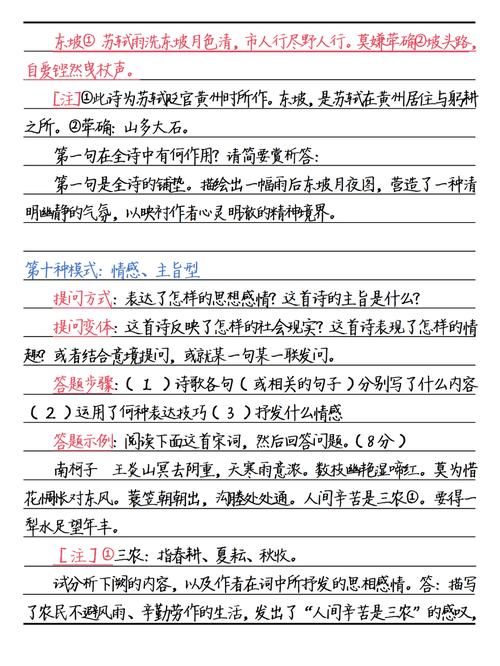 东坡① 苏轼雨洗东坡月色清，市人行尽野人行。莫嫌荦确②坡头路，
自爱铿然曳杖声。
[注]①此诗为苏轼贬官黄州时所作。东坡，是苏轼在黄州居住与躬耕
之所。②荦确：山多大石。
第一句在全诗中有何作用？请简要赏析答：
第一句是全诗的铺垫。描绘出一幅雨后东坡月夜图，营造了一种清
明幽静的气氛，以映衬作者心灵明敞的精神境界。
第十种模式：情感、主旨型
提问方式：表达了怎样的思想感情？这首诗的主旨是什么？
提问变体：这首诗反映了怎样的社会现实？这首诗表现了怎样的情
趣？或者结合意境提问，或就某一句某一联发问。
答题步骤：（1）诗歌各句（或相关的句子）分别写了什么内容
（2）运用了何种表达技巧（3）抒发什么情感
答题示例：阅读下面这首宋词，然后回答问题。（8分）
南柯子 王炎山冥云阴重，天寒雨意浓。数枝幽艳湿啼红。莫为惜
花惆怅对东风。蓑笠朝朝出，沟塍处处通。人间辛苦是三农①。要得一
犁水足望年丰。
[注]①三农：指春耕、夏耘、秋收。
试分析下阕的内容，以及作者在词中所抒发的思相感情。答：描写
了农民不避风雨、辛勤劳作的生活，发出了“人间辛苦是三农”的感叹，